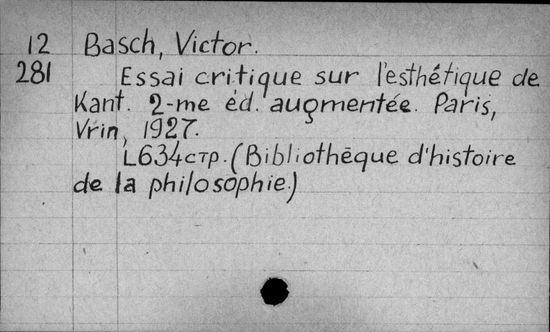 12 Basch, Victor.
281 Essai critique sur l'esthétique de
Kant. 2-me éd. augmentée. Paris,
Vrin, 1927.
L634стр. (Bibliothēque d'histoire
de la philosophie.)